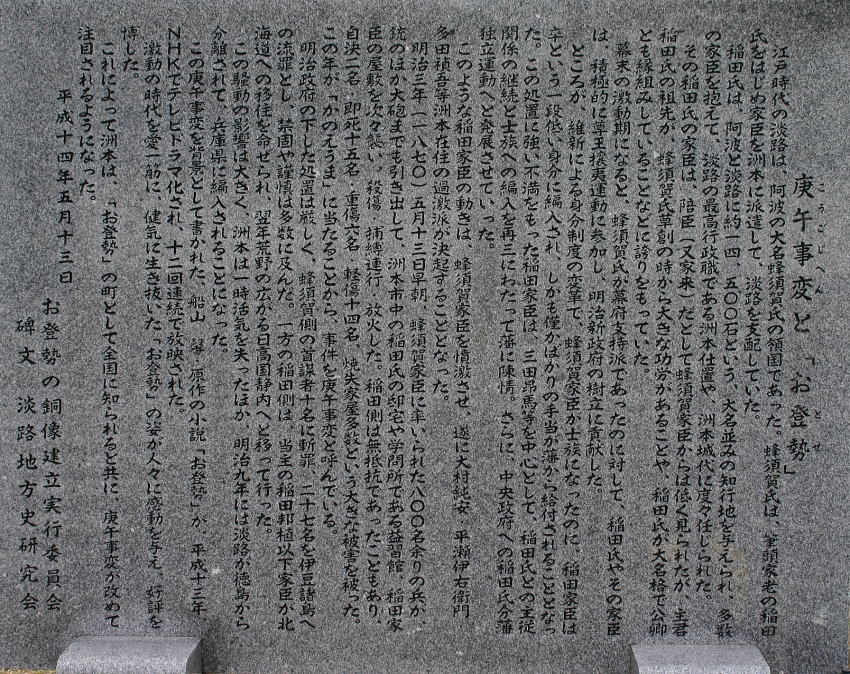 こうごじへん
とせ
庚午事変と「お登勢」
江戸時代の淡路は、阿波の大名蜂須賀氏の領国であった。蜂須賀氏は、筆頭家老の稲田
氏をはじめ家臣を洲本に派遣して、淡路を支配していた。
稲田氏は、阿波と淡路に約一四、五〇〇石という、大名並みの知行地を与えられ、多数
の家臣を抱えて、淡路の最高行政職である洲本仕置や、洲本城代に度々任じられた。
その稲田氏の家臣は、陪臣（又家来）だとして蜂須賀家臣からは低く見られたが、主君
稲田氏の祖先が、蜂須賀氏草創の時から大きな功労があることや、稲田氏が大名格で公卿
とも縁組みしていることなどに誇りをもっていた。
幕末の激動期になると、蜂須賀氏が幕府支持派であったのに対して、稲田氏やその家臣
は、積極的に尊王攘夷運動に参加し、明治新政府の樹立に貢献した。
ところが、維新による身分制度の変革で、蜂須賀家臣が士族になったのに、稲田家臣は
卒という一段低い身分に編入され、しかも僅かばかりの手当が藩から給付されることとなっ
た。この処置に強い不満をもった稲田家臣は、三田昂馬等を中心として、稲田氏との主従
関係の継続と士族への編入を再三にわたって藩に陳情。さらに、中央政府への稲田氏分藩
独立運動へと発展させていった。
このような稲田家臣の動きは、蜂須賀家臣を憤激させ、遂に大村純安、平瀬伊右衛門、
多田禎吾等洲本在住の過激派が決起することとなった。
明治三年（一八七〇）五月十三日早朝、蜂須賀家臣に率いられた八〇〇名余りの兵が、
銃のほか大砲までも引き出して、洲本市中の稲田氏の邸宅や学問所である益習館、稲田家
臣の屋敷を次々襲い、殺傷、捕縛連行、放火した。稲田側は無抵抗であったこともあり、
自決二名、即死十五名、重傷六名、軽傷十四名、焼失家屋多数という大きな被害を被った。
この年が、「かのえうま」に当たることから、事件を庚午事変と呼んでいる。
明治政府の下した処置は厳しく、蜂須賀側の首謀者十名に斬罪、二十七名を伊豆諸島へ
の流罪とし、禁固や謹慎は多数に及んだ。一方の稲田側は、当主の稲田邦植以下家臣が北
海道への移住を命ぜられ、翌年荒野の広がる日高国静内へと移って行った。
この騒動の影響は大きく、洲本は一時活気を失ったほか、明治九年には淡路が徳島から
分離されて、兵庫県に編入されることになった。
この庚午事変を背景として書かれた、船山 馨 原作の小説「お登勢」が、平成十三年、
NHKでテレビドラマ化され、十二回連続で放映された。
激動の時代を愛一筋に、健気に生き抜いた「お登勢」の姿が人々に感動を与え、好評を
博した。
これによって洲本は、「お登勢」の町として全国に知られると共に、庚午事変が改めて
注目されるようになった。
平成十四年五月十三日
お登勢の銅像建立実行委員会
碑文 淡路地方史研究会